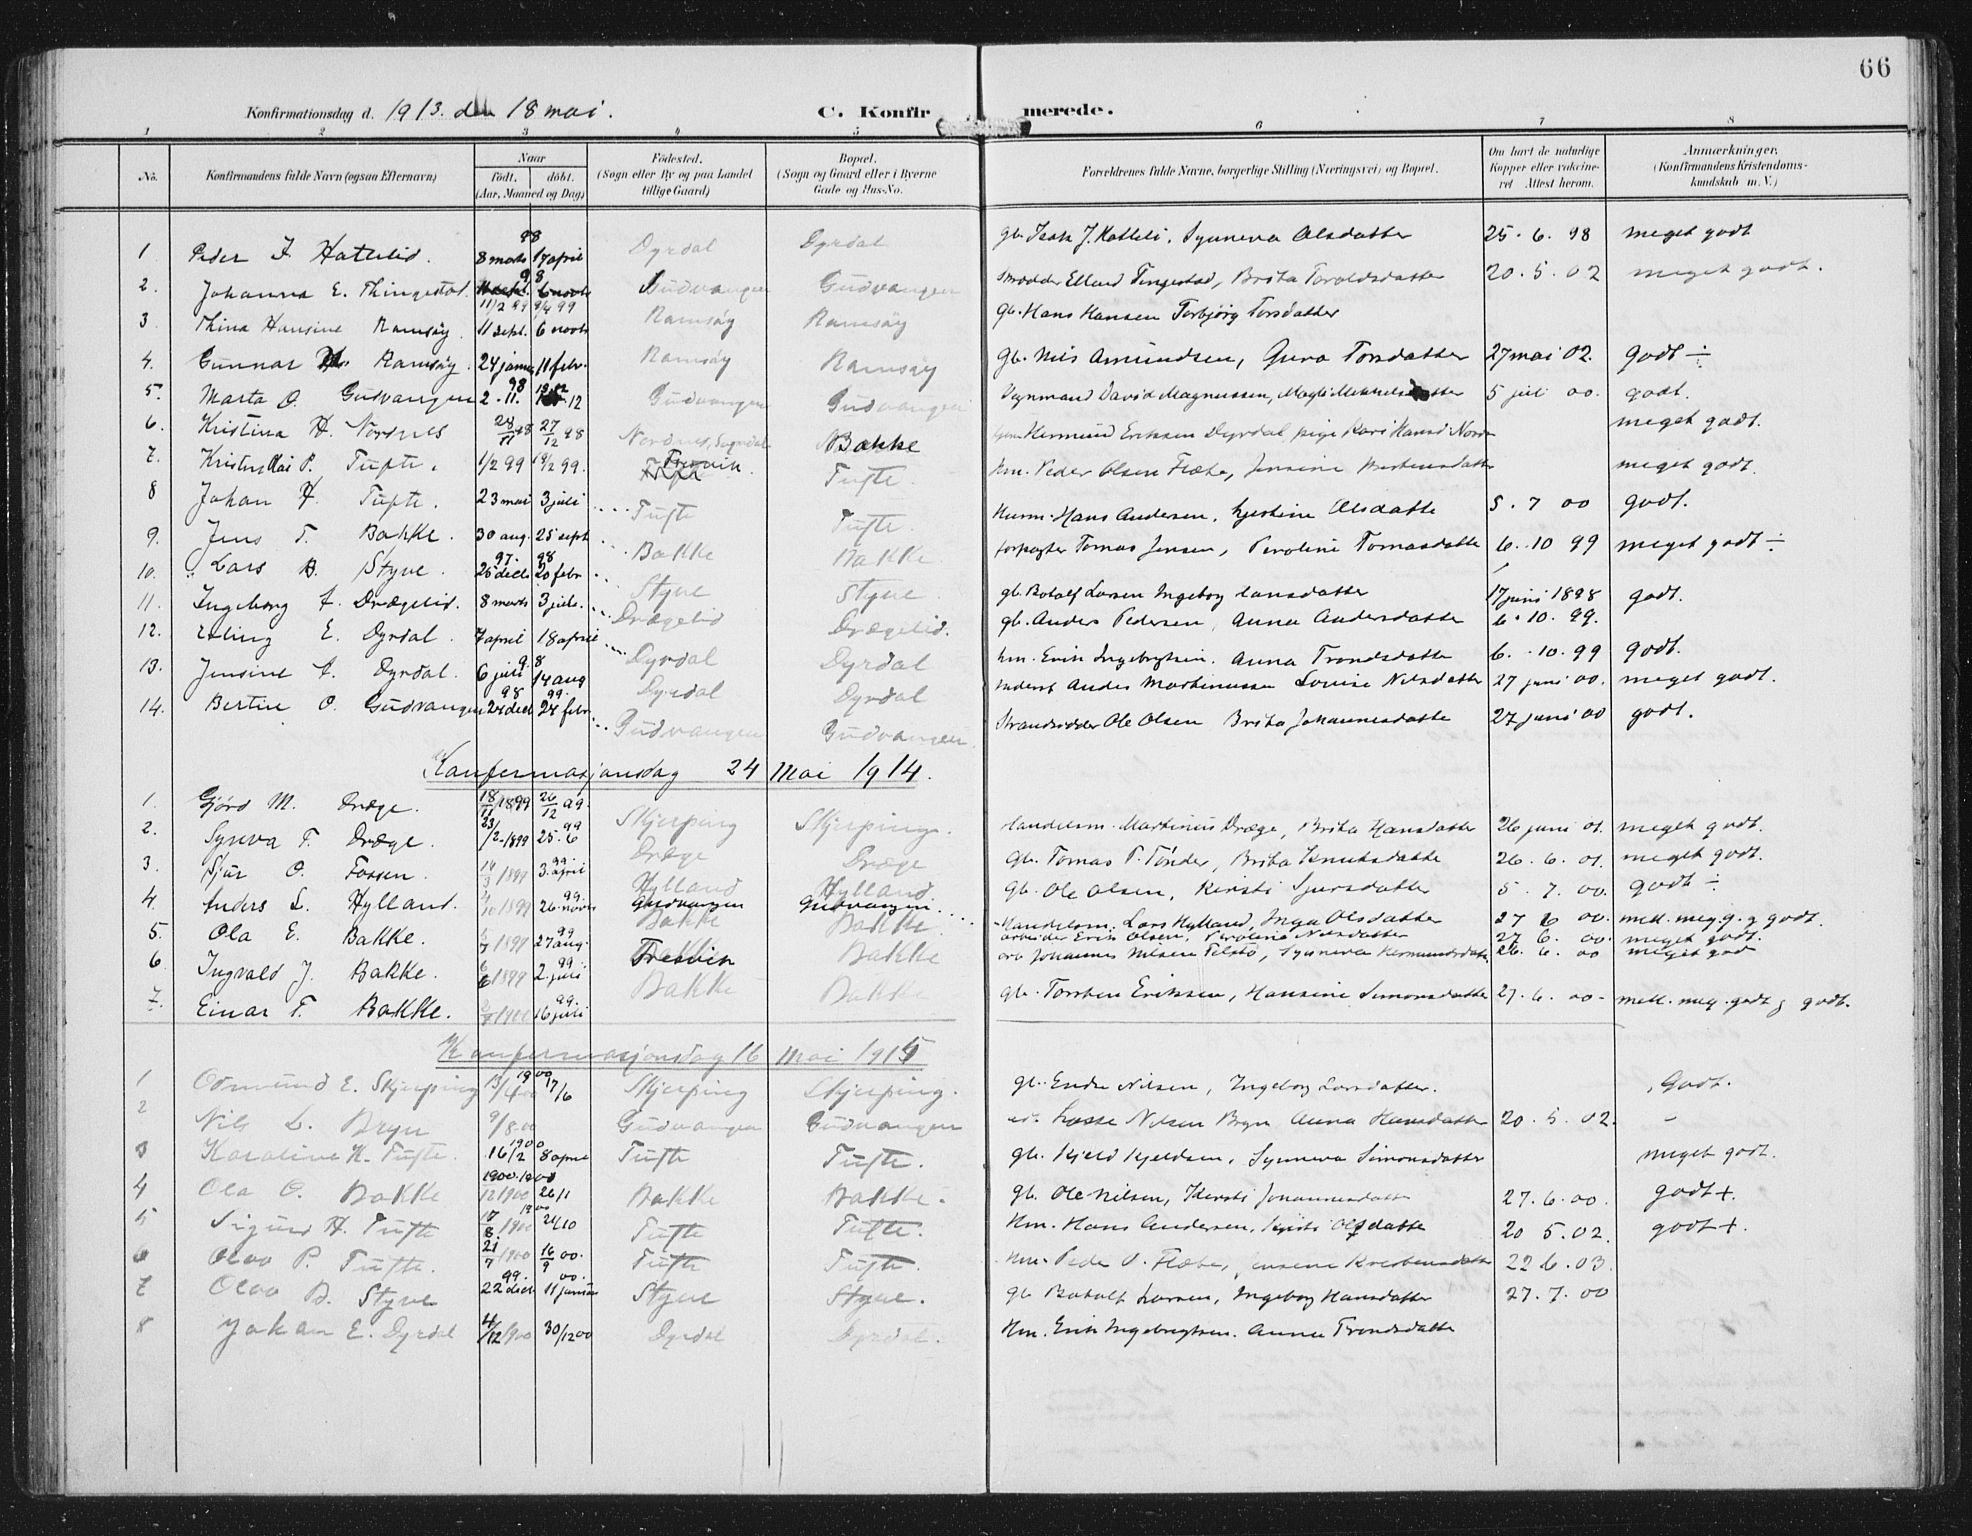 66
Konfirmationsdag d. 1913. den 18 mai. C. Konfirmerede.
1 2 3 4 5 6 7 8
No. Konfirmandens fulde Navn (ogsaa Efternavn) Naar født. døbt. (Aar, Maaned og Dag) Fødested. (Sogn eller By og paa Landet tillige Gaard) Bopæl. (Sogn og Gaard eller i Byerne Gade og Hus-No. Forældrenes fulde Navne, borgerlige Stilling (Næringsvei) og Bopæl. Om havt de naturlige Kopper eller vaccineret Attest herom. Anmærkninger. (Konfirmandens Kristendomskundskab m. V.)
1 Peder I. Hatlelid. 98 8 marts 17 april Dyrdal Dyrdal gb. Isak J. Hatleli, Synneva Olsdatter 25. 6. 98 meget godt
2. Johanna E. Thingestad. 98 11/2 99 9/4 99 Gudvangen Gudvangen Ellend Tingestad, Brita Toroldsdatter 20. 5. 02 meget godt.
3 Thina Hansine Ramsøy. 11 sept. 6 novb Ramsøy Ramsøy gb. Hans Hansen Torbjørg Torsdatter
4. Gunnar Ramsøy. 24 janu 11 febr. Ramsøy Ramsøy gb. Nils Amundsen, Guro Torsdatter 27 mai 02. godt ÷
5. Marta O. Gudvangen 98 2. 11. 12 Gudvangen Gudvangen David Magnussen, 5 juli 00. godt.
6. Kristina H. Nordnes 28/11 98 27/12 98 Nordnes, Sogndal Bakke Hermund Eriksen Dyrdal pige Kari Hansd Nordn meget godt.
7. Kristen Kai P. Tufte. 1/2 99 19/2 99. Fresvik Tufte. hm. Peder Olsen Flæte, Jensine meget godt.
8 Johan H. Tufte. 23 mai 3 juli Tufte Tufte. Husm. Hans Andersen, Kjestine Olsdatte 5. 7 00 godt.
9. Jens T. Bakke. 30 aug. 25 sept Bakke Bakke forpagter Tomas Jensen, Peroline Tomasdatte 6. 10 99 meget godt ÷
10. Lars B. Styve. 97. 98 25 decb 20 febr Styve Styve. gb. Botolf Larsen Ingeborg Hansdatter 17 juni 1898 godt.
11. Ingeborg A. Drægelid. 8 marts 3 juli. Drægelid Drægelid. gb. Anders Pedersen, Anna Andersdatter 6. 10. 99.
12. Erling E. Dyrdal. 7 april 18 april Dyrdal Dyrdal hm. Erik Ingebrigtsen. Anna Trondsdatte 6. 10. 99 godt.
13. Jensine A. Dyrdal. 98 6 juli 14 aug Dyrdal Dyrdal Anders Martinussen Lovise Nilsdatter 27 juni 00. meget godt.
14. Bertine O. Gudvangen 98 99. 24 decb 24 febr. Gudvangen Gudvangen Strandsidder Ole Olsen Brita Johannesdatte 27 juni 00 godt.
Konfermasjonsdag 24 Mai 1914.
1. Gjørd M. Dræge. 18/11 1899 26/12 99. Skjerping Skjerping. Handelsm. Martinius Dræge, Brita Hansdatter 26 juni 01. meget godt.
2. Synva T. Dræge. 23/2-1899 99 25. 6 Dræge Dræge gb. Tomas P. Tønder, Brita Knutsdatte 26. 6. 01. meget godt.
3. Sjur O. Fossen. 1899 99. 3. april Hylland Hylland gb. Ole Olsen, Kersti Sjursdatter 5. 7. 00. godt ÷
4. Anders L. Hylland. 1899 99. 26. novb Gudvangen Gudvangen. Handelsm. Lars Hylland, Inga Olsdatter 27 6 00. mell. meg. g. og godt.
5. Ola E. Bakke. 1899 99 27 aug. Bakke Bakke. arbeider Erik Olsen, Peroline Nilsdatter 27 6. 00. meget godt.
6 Ingvald J. Bakke. 1899 99. 2. juli Fresvik Bakke arb Johannes Nilsen Synneva Hermundsdatt 26. 6. 00 meget god
7. Einar T. Bakke. 1900 99. 16 juli Bakke Bakke gb. Torsten Eriksen, Hansine Simonsdatter 27. 6. 00- mell. meg. godt og godt.
Konfermasjonsdag 16 Mai 1915
1 Odmund E. Skjerping 13/4 00 1900 17/6 Skjerping Skjerping. gb. Endre Nilsen, Ingeborg Larsdatter. Godt.
2 Nils L. Bryn 9/8.00 Gudvangen Gudvangen Lasse Nilsen Bryn Anna Hansdatter 20. 5. 02. -
3 Karoline K. Tufte. 1900 16/2 8 april Tufte Tufte. gb. Kjeld Kjeldsen, Synneva Simonsdatter meget godt.
4 Ola O. Bakke 1900. 1900 12/1900 26/1 Bakke Bakke. gb. Ole Nilsen, Kersti Johannesdatte 27. 6. 00. godt +.
5 Sigurd H. Tufte 17/8. 1900 1900 21/10 Tufte Tufte. Hm. Hans Andersen, Kjersti Olsdatte 20 5. 02. godt +.
6 Olav P. Tufte. 21/7 1900 16/9 00. Tufte Tufte. Hm. Peder O. Flæte, Jensine 22 6. 03.
7 Olav B. Styve 99. 00. 22 decb 11 januar Styve Styve. gb Botolf Larsen, Ingeborg Hansdatter 27. 7. 00
8 Johan E. Dyrdal 4/12 1900 30/12 00 Dyrdal Dyrdal. Hm. Erik Ingebrigtsen. Anna Trondsdatte